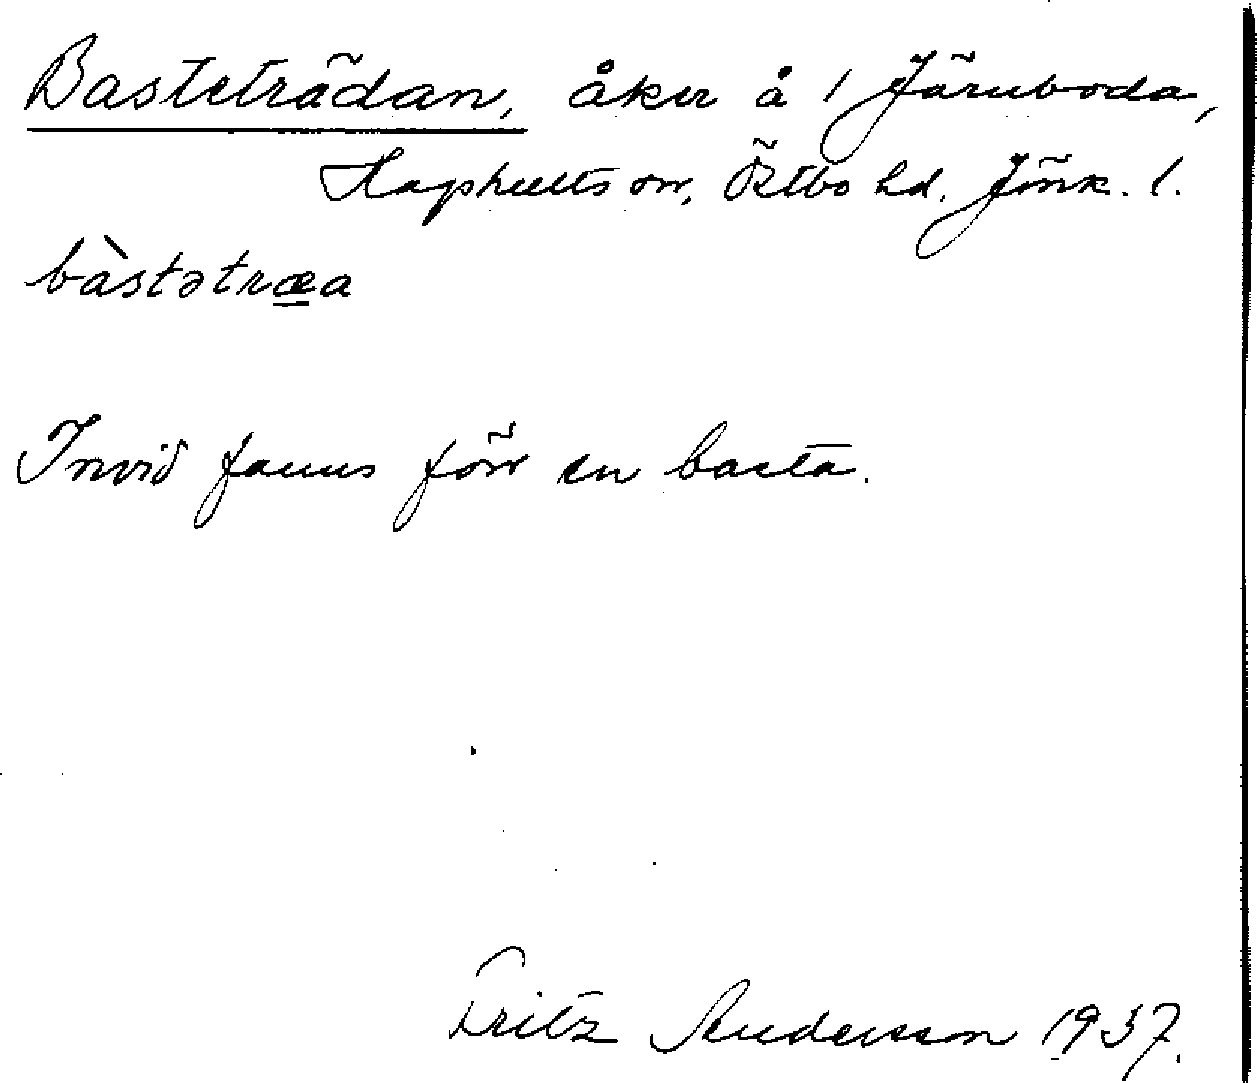 Basteträdan, åker å 1 Järnboda,
Hagshults sn, Östbo hd. Jönk. l.
bàstətræa
Invid fanns förr en basta.
Fritz Andersson 1937.